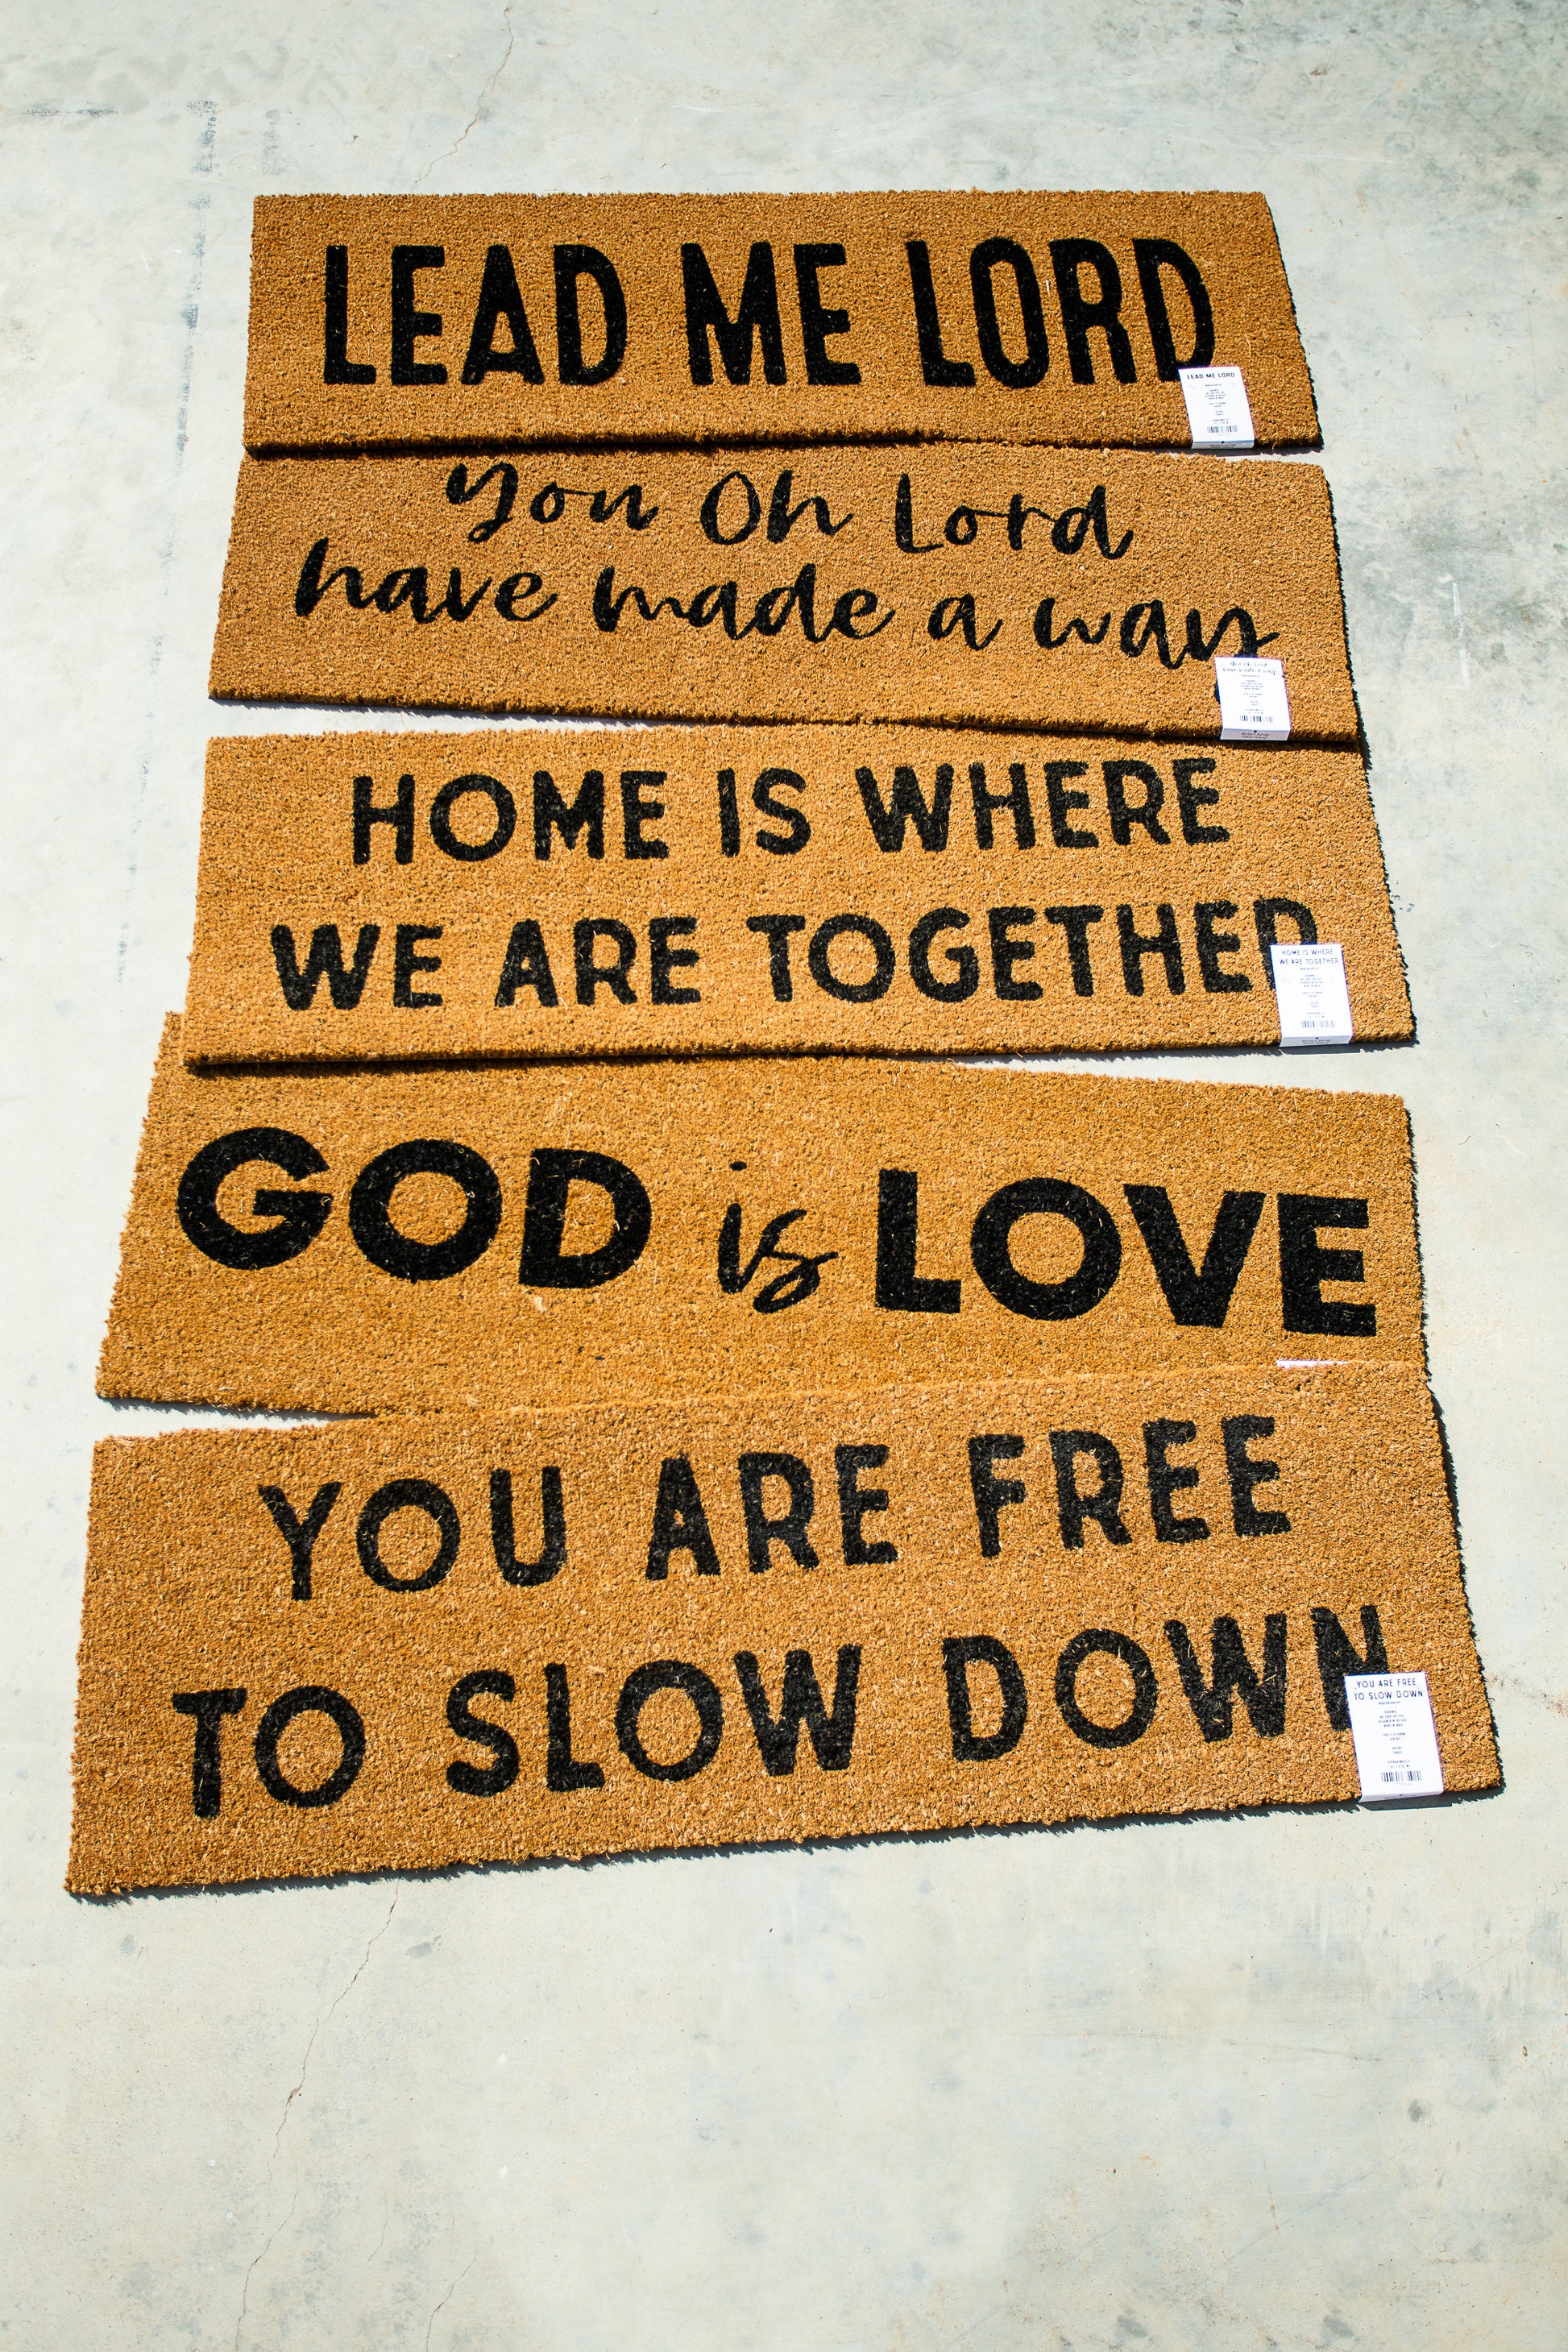 LEAD ME LORD
LEAD ME LORD
you Oh Lord
have made a way
you Oh Lord
have made a way
HOME IS WHERE
WE ARE TOGETHER
HOME IS WHERE
WE ARE TOGETHER
GOD is LOVE
YOU ARE FREE
TO SLOW DOWN
YOU ARE FREE
TO SLOW DOWN